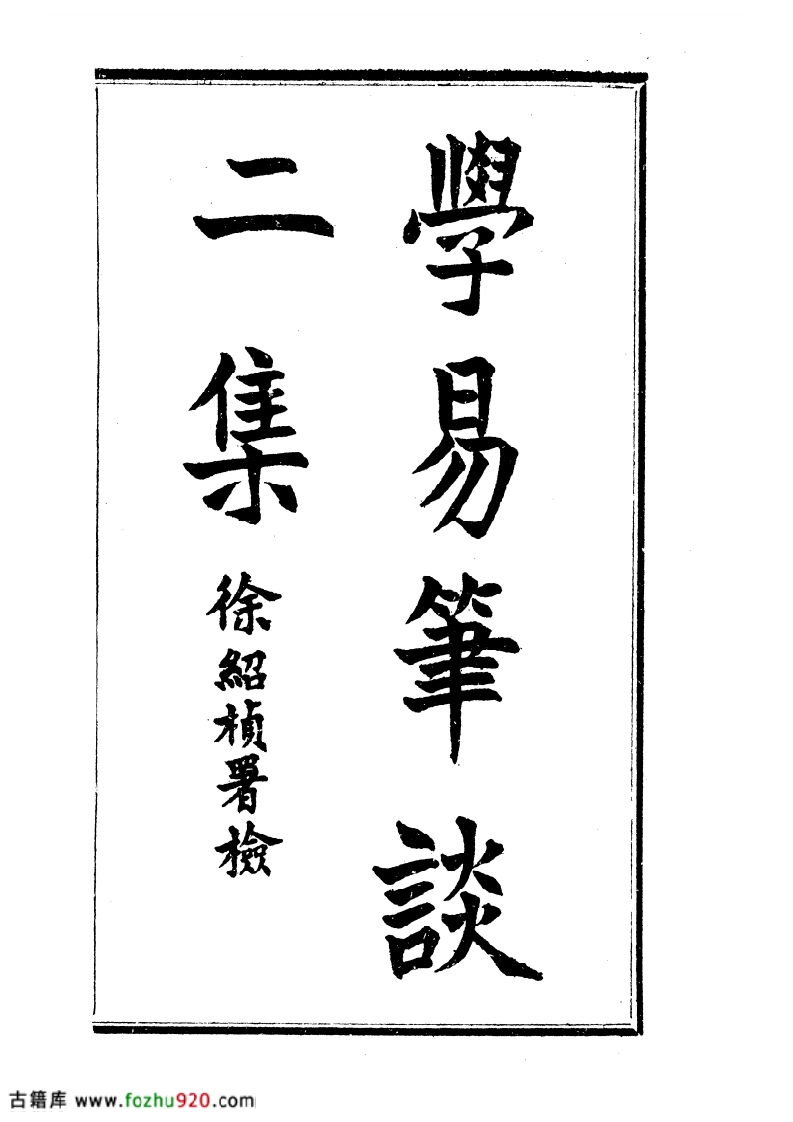 學易筆談
二集
徐紹楨署檢
古籍库 www.fozhu920.com